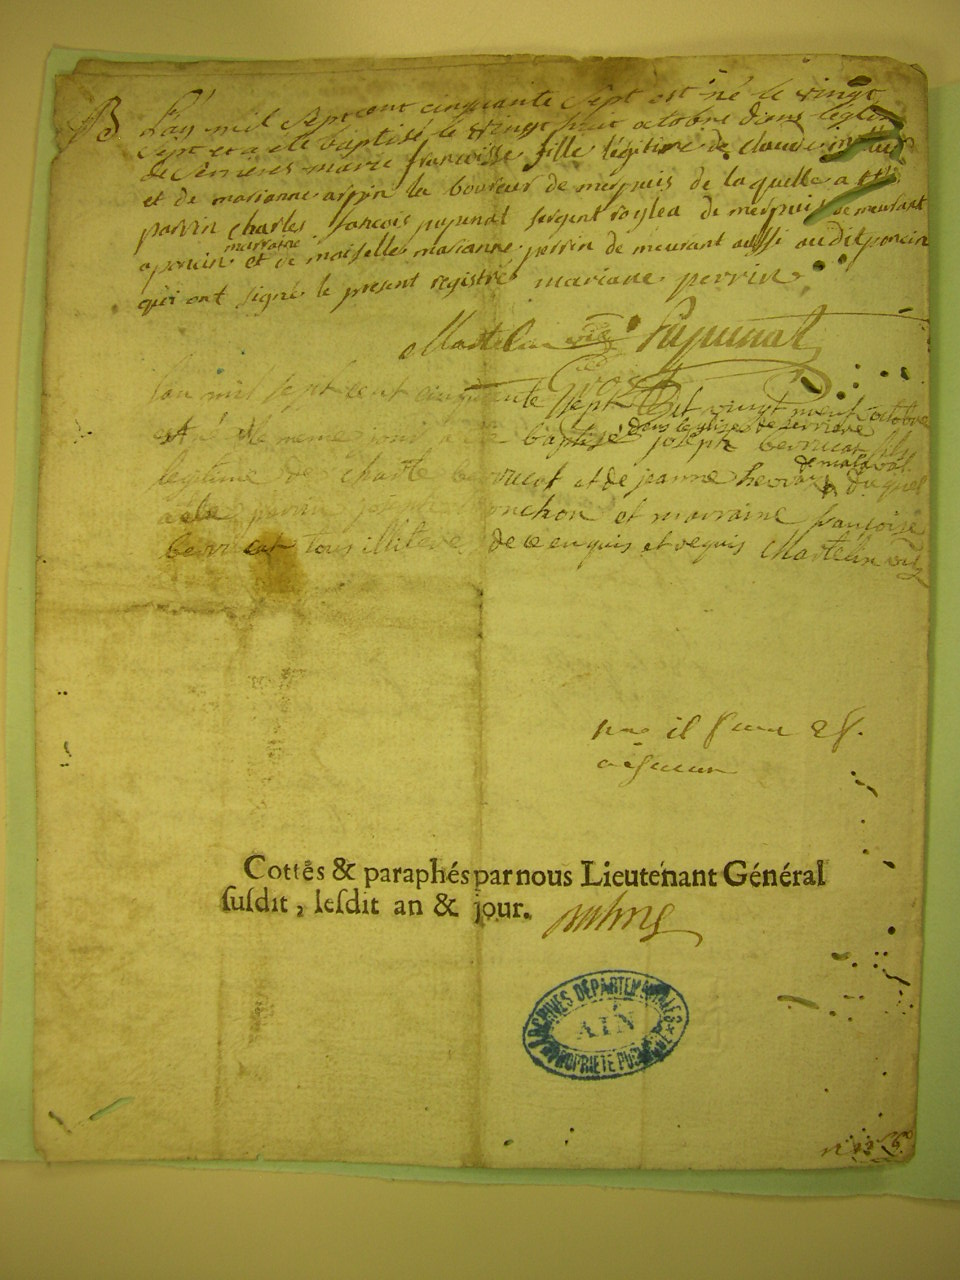 B
L'an mil sept cent cinquante sept est né le vingt
sept et a ete baptisé le vingt huit octobre dans l'églis
de serrieres marie francoisse fille légitime de claude
et de marianne arpin la boureur de merpuis de laquelle a
parrin charles francois pupunat sergent roylea de merpuis demeurant
a poncin marraine et de moiselle marianne perrin de meurant aussi audit poncin
qui ont signé le present registre mariane perrin
Martelin vic Pupunat
lan mil sept cent cinquante sept et vingt neuf octobre
est né le meme jour a ete baptisé dans leglise de serriere joseph berrucat fils
legitime de charle berrucat et de jeanne de malaval duquel
a ete parrin ponchon et marraine françoise
berrucat tous illiteré de ce enquis et requis Martelin vic
Cottés & paraphés par nous Lieutenant Général
susdit, lesdit an & jour.
ARCHIVES DÉPARTEMENTALES
AIN
PROPRIÉTÉ PUBLIQUE